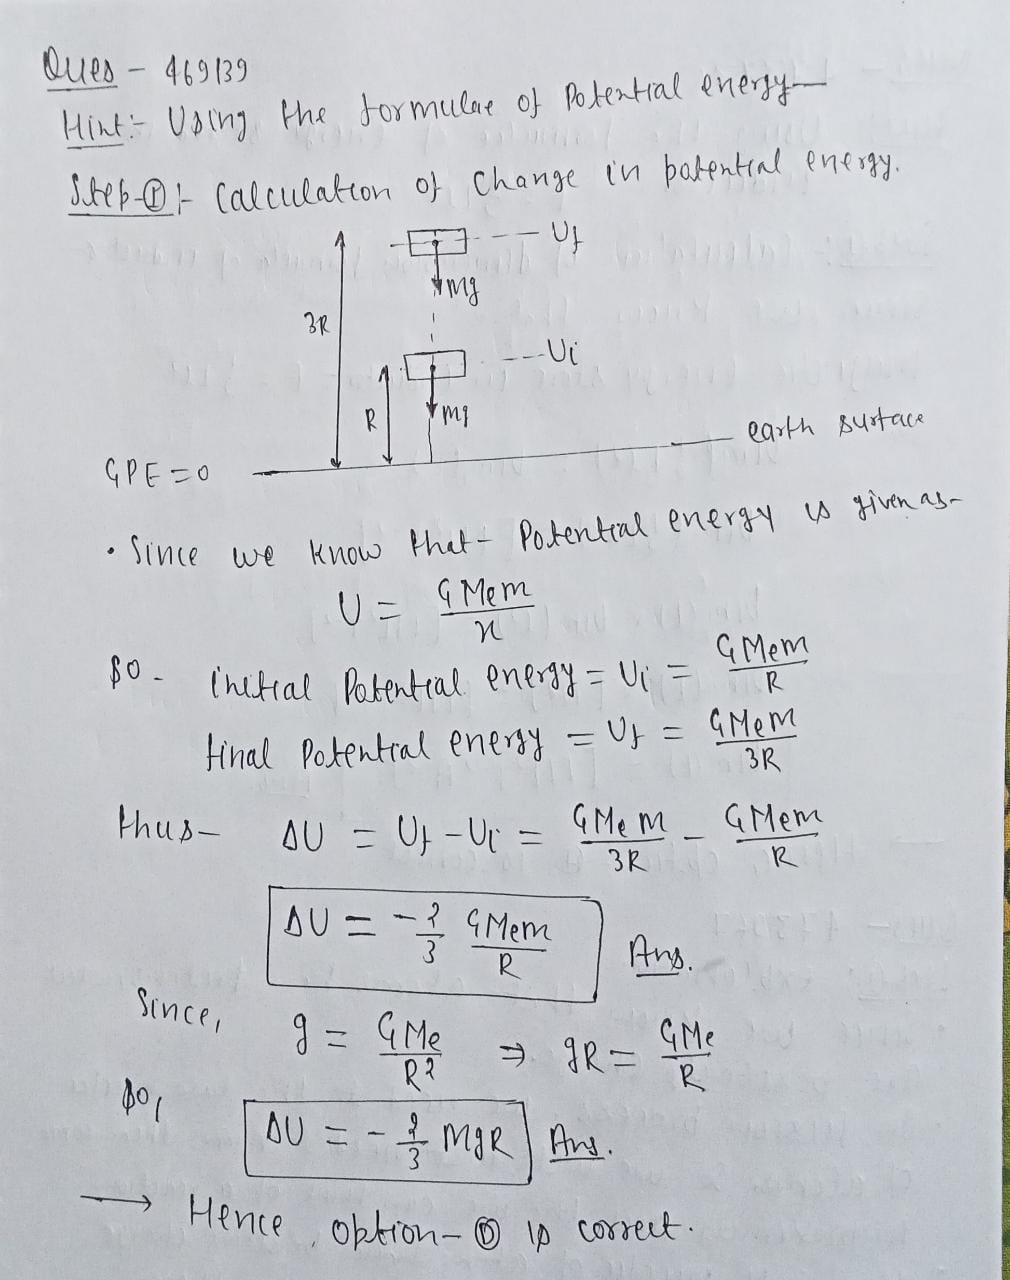 Ques - 469139
Hint:- Using the formulae of Potential energy—
Step-①:- Calculation of change in potential energy.
Uf
mg
3R
Ui
R
mg
earth surface
GPE = 0
• Since we know that - Potential energy is given as-
U = GMem/x
So - initial Potential energy = Ui = GMem/R
final Potential energy = Uf = GMem/3R
thus- ΔU = Uf - Ui = GMem/3R - GMem/R
ΔU = -2/3 GMem/R Ans.
Since, g = GMe/R² ⇒ gR = GMe/R
So, ΔU = -2/3 MgR Ans.
→ Hence, option- ⓓ is correct.